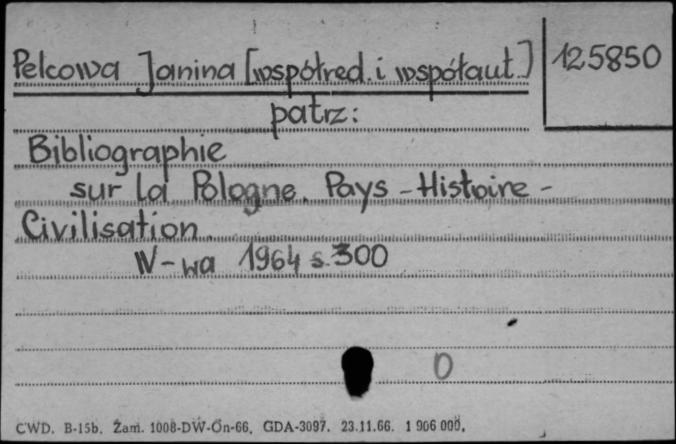 Pelcowa Janina [współred. i współaut.]
125850
patrz:
Bibliographie
sur la Pologne. Pays - Histoire -
Civilisation.
W-wa 1964 s. 300
0
CWD. B-15b. Zam. 1008-DW-On-66. GDA-3097. 23.11.66. 1 906 000.